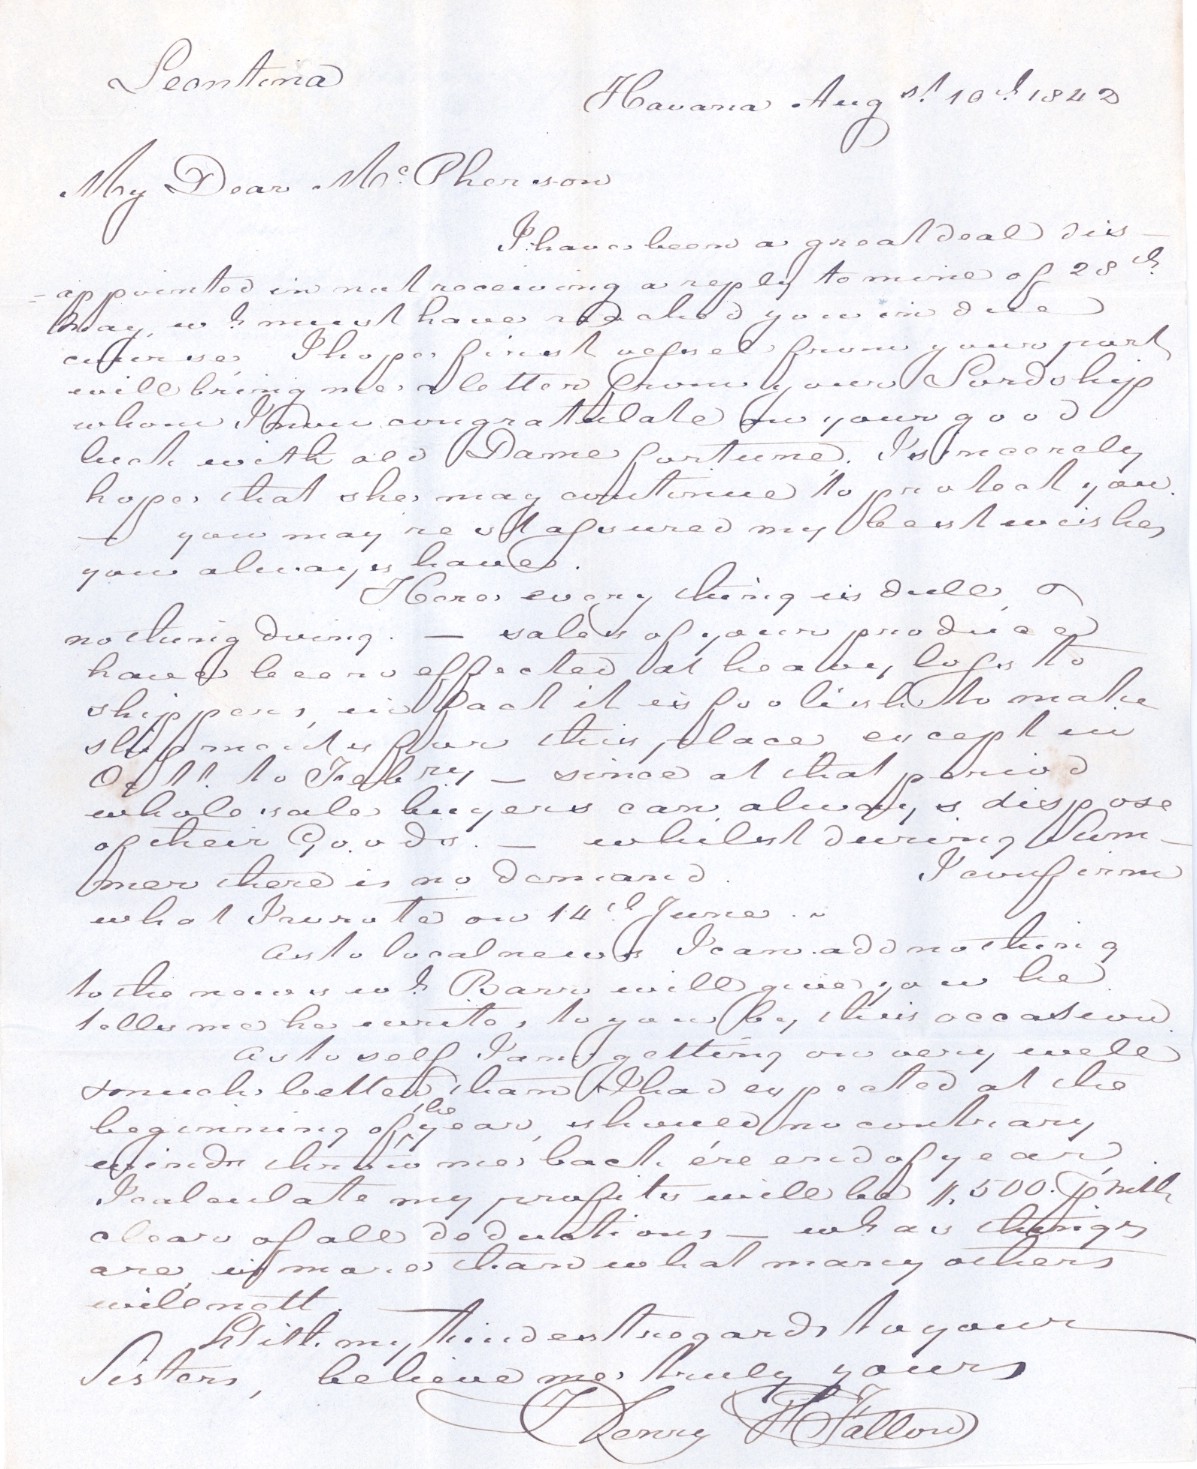 Leontina
Havana Augst. 10th. 1842
My Dear McPherson
I have been a great deal dis-
-appointed in not receiving a reply to mine of 28th.
May, wh. must have reached you in due
course, I hope first vessel from your port
will bring me a letter from your Lordship
whom I now congratulate on your good
luck with old Dame fortune. I sincerely
hope that she may continue to protect you.
— you may rest assured my best wishes
you always have.
Here every thing is dull, &
nothing doing. — sales of your produce
have been effected at heavy loss to
shippers, in fact it is foolish to make
shipments for this place except in
Octr. to Febry — since at that period
whole sale buyers can always dispose
of their Goods. — whilst during Sum-
mer there is no demand. I confirm
what I wrote on 14th. June. ~
As to local news I can add nothing
to the news wh. Barr will give you he
tells me he writes to you by this occasion.
As to self I am getting on very well
so much better than I had expected at the
beginning of the year, should no contrary
winds throw me back e're end of year
I calculate my profits will be $500. p mth
clear of all deductions — wh. as things
are, is more than what many others
will nett.
With my kindest regards to your
Sisters, believe me truly yours
Henry Fallon